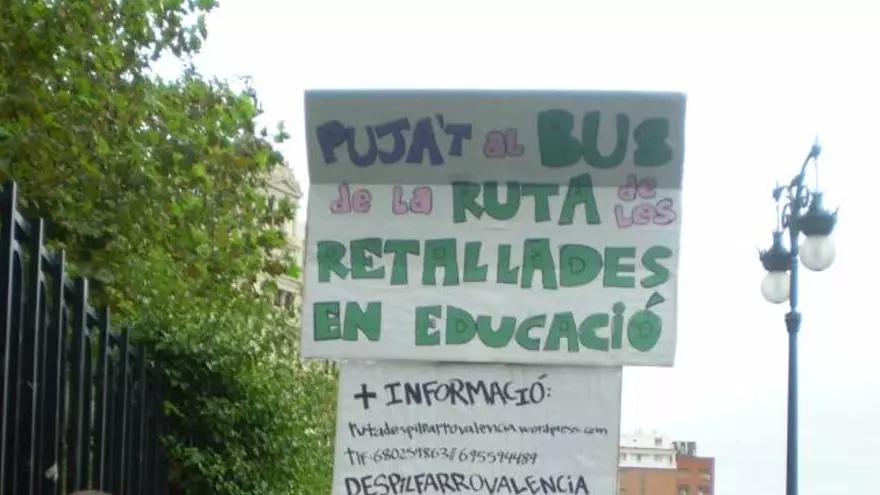 PUJA'T al BUS
de la RUTA de les
RETALLADES
EN EDUCACIÓ
+ INFORMACIÓ:
rutadespilfarrovalencia.wordpress.com
tlf-680259863//695594489
DESPILFARROVALENCIA